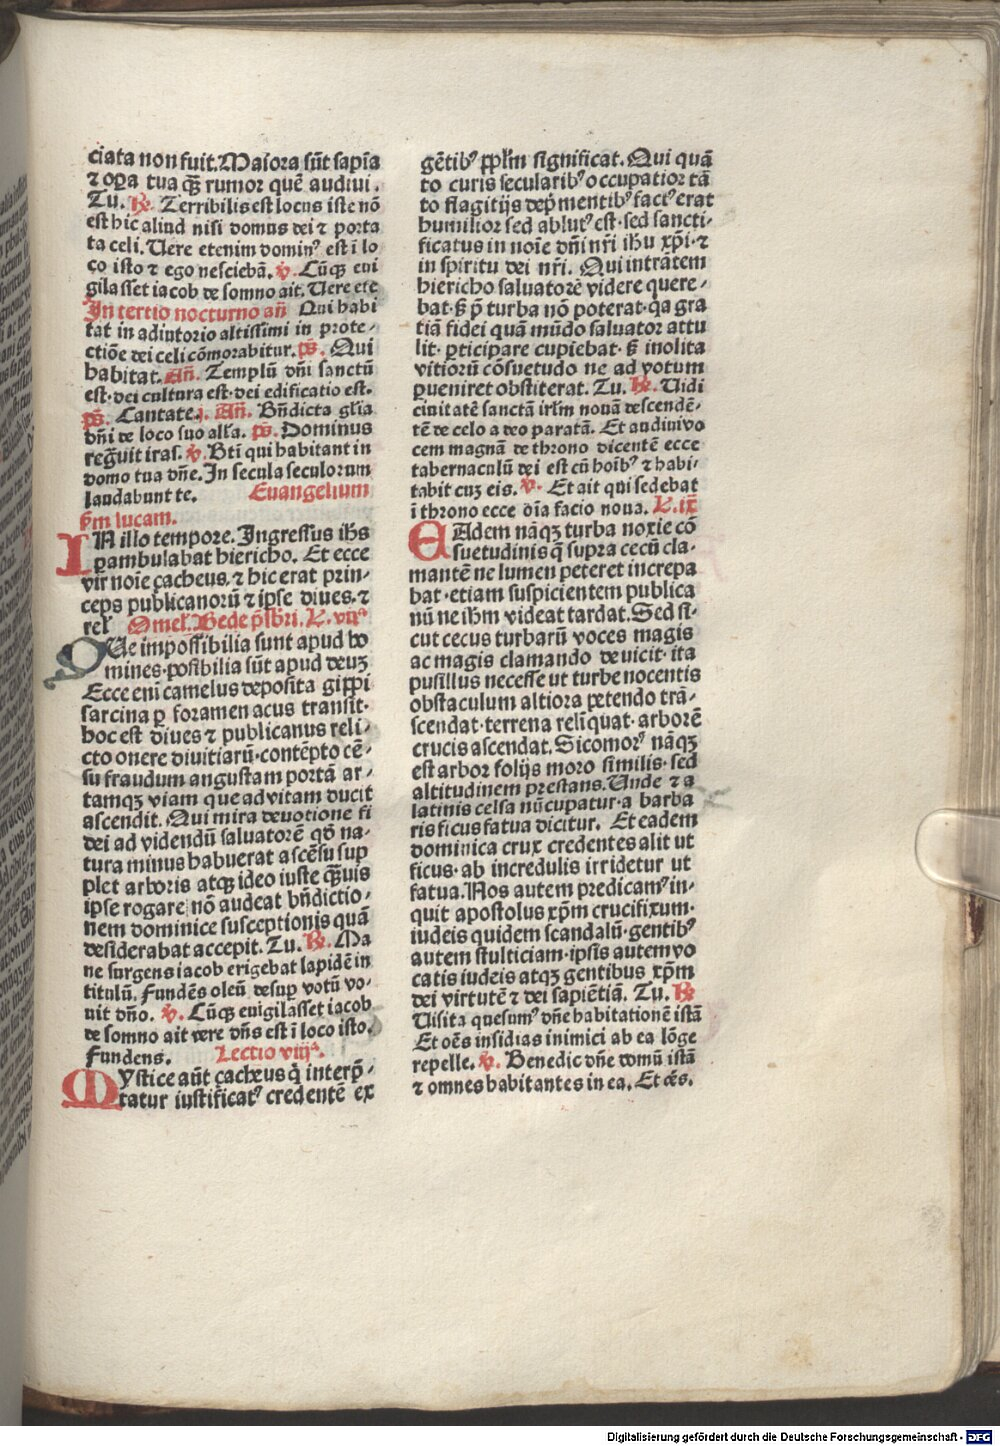 ciata non fuit. Maiora sūt sapīa
⁊ oꝑa tua qȝ̄ rumor quē audiui.
Tu. ℞. Terribilis est locus iste nō
est hic aliud nisi domus dei ⁊ porta
ta celi. Uere etenim dominꝰ est ī lo
co isto ⁊ ego nesciebā. ℣. Cūqȝ eui
gilasset iacob de somno ait. Uere ete
In tertio nocturno añ Qui habi
tat in adiutorio altissimi in prote⸗
ctiōe dei celi cōmorabitur. ps̄. Qui
habitat. Añ. Templū dñi sanctū
est· dei cultura est· dei edificatio est.
ps̄. Cantate. i. Añ. Bñdicta gl̄ia
dñi de loco suo all̄a. ps̄. Dominus
regūit iras. ℣. Bti̅ qui habitant in
domo tua dñe. In secula seculorum
laudabunt te. Euangelium
ẜm lucam.
IN illo tempore. Ingressus ih̄s
ꝑambulabat hiericho. Et ecce
vir noīe çacheus. ⁊ hic erat prin⸗
ceps publicanorū ⁊ ipse diues. ⁊
rel̄ Omel̄. Bede p̄sbri. L. viiᵃ
QUe impossibilia sunt apud ho
mines· possibilia sūt apud deuȝ
Ecce eni̅ camelus deposita gippi
sarcina ꝑ foramen acus transit·
hoc est diues ⁊ publicanus reli⸗
cto onere diuitiarū· contēpto cē⸗
su fraudum angustam portā ar⸗
tamqȝ viam que ad vitam ducit
ascendit. Qui mira deuotione fi
dei ad videndū saluatorē qd̄ na⸗
tura minus habuerat ascēsu sup
plet arboris atqȝ ideo iuste qȝ̄uis
ipse rogare nō audeat bñdictio⸗
nem dominice susceptionis quā
desiderabat accepit. Tu. ℞. Ma
ne surgens iacob erigebat lapidē in
titulū. Fundēs oleū desuꝑ votū vo⸗
uit dño. ℣. Cūqȝ euigilasset iacob
de somno ait vere dñs est ī loco isto.
Fundens. Lectio viijᵃ.
MYstice aūt çacheus q̄ interp̄⸗
tatur iustificatꝰ credentē ex
gētibꝰ ppl̄m significat. Qui quā
to curis secularibꝰ occupatior tā
to flagitijs dep̄mentibꝰ factꝰ erat
humilior sed ablutꝰ est· sed sancti⸗
ficatus in noīe dñi nr̄i ih̄u xp̄i· ⁊
in spiritu dei nr̄i. Qui intrātem
hiericho saluatorē videre quere⸗
bat· ẜ p̄ turba nō poterat· qa gra
tiā fidei quā mūdo saluator attu
lit· ꝑticipare cupiebat· ẜ inolita
vitiorū cōsuetudo ne ad votum
ꝑueniret obstiterat. Tu. ℞. Uidi
ciuitatē sanctā irl̄m nouā descendē⸗
tē de celo a deo paratā. Et audiui vo
cem magnā de throno dicentē ecce
tabernaculū dei est cū hoībꝰ ⁊ habi⸗
tabit cuȝ eis. ℣. Et ait qui sedebat
ī throno ecce oīa facio noua. L. ix̄
EAdem nāqȝ turba noxie cō
suetudinis q̄ supra cecū cla⸗
mantē ne lumen peteret increpa
bat· etiam suspicientem publica
nū ne ih̄m videat tardat. Sed si⸗
cut cecus turbarū voces magis
ac magis clamando deuicit· ita
pusillus necesse ut turbe nocentis
obstaculum altiora petendo trā⸗
scendat· terrena reliquat· arborē
crucis ascendat. Sicomorꝰ nāqȝ
est arbor folijs moro similis· sed
altitudinem prestans. Unde ⁊ a
latinis celsa nūcupatur· a barba
ris ficus fatua dicitur. Et eadem
dominica crux credentes alit ut
ficus· ab incredulis irridetur ut
fatua. Nos autem predicamꝰ in⸗
quit apostolus xp̄m crucifixum·
iudeis quidem scandalū· gentibꝰ
autem stulticiam· ipsis autem vo
catis iudeis atqȝ gentibus xp̄m
dei virtutē ⁊ dei sapiētiā. Tu. ℞
Uisita quesumꝰ dñe habitationē istā
Et oēs insidias inimici ab ea lōge
repelle. ℣. Benedic dñe domū istā
⁊ omnes habitantes in ea. Et oēs.
Digitalisierung gefördert durch die Deutsche Forschungsgemeinschaft - DFG